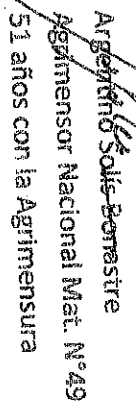 Argentino Solis Bonastre
Agrimensor Nacional Mat. N°49
51 años con la Agrimensura